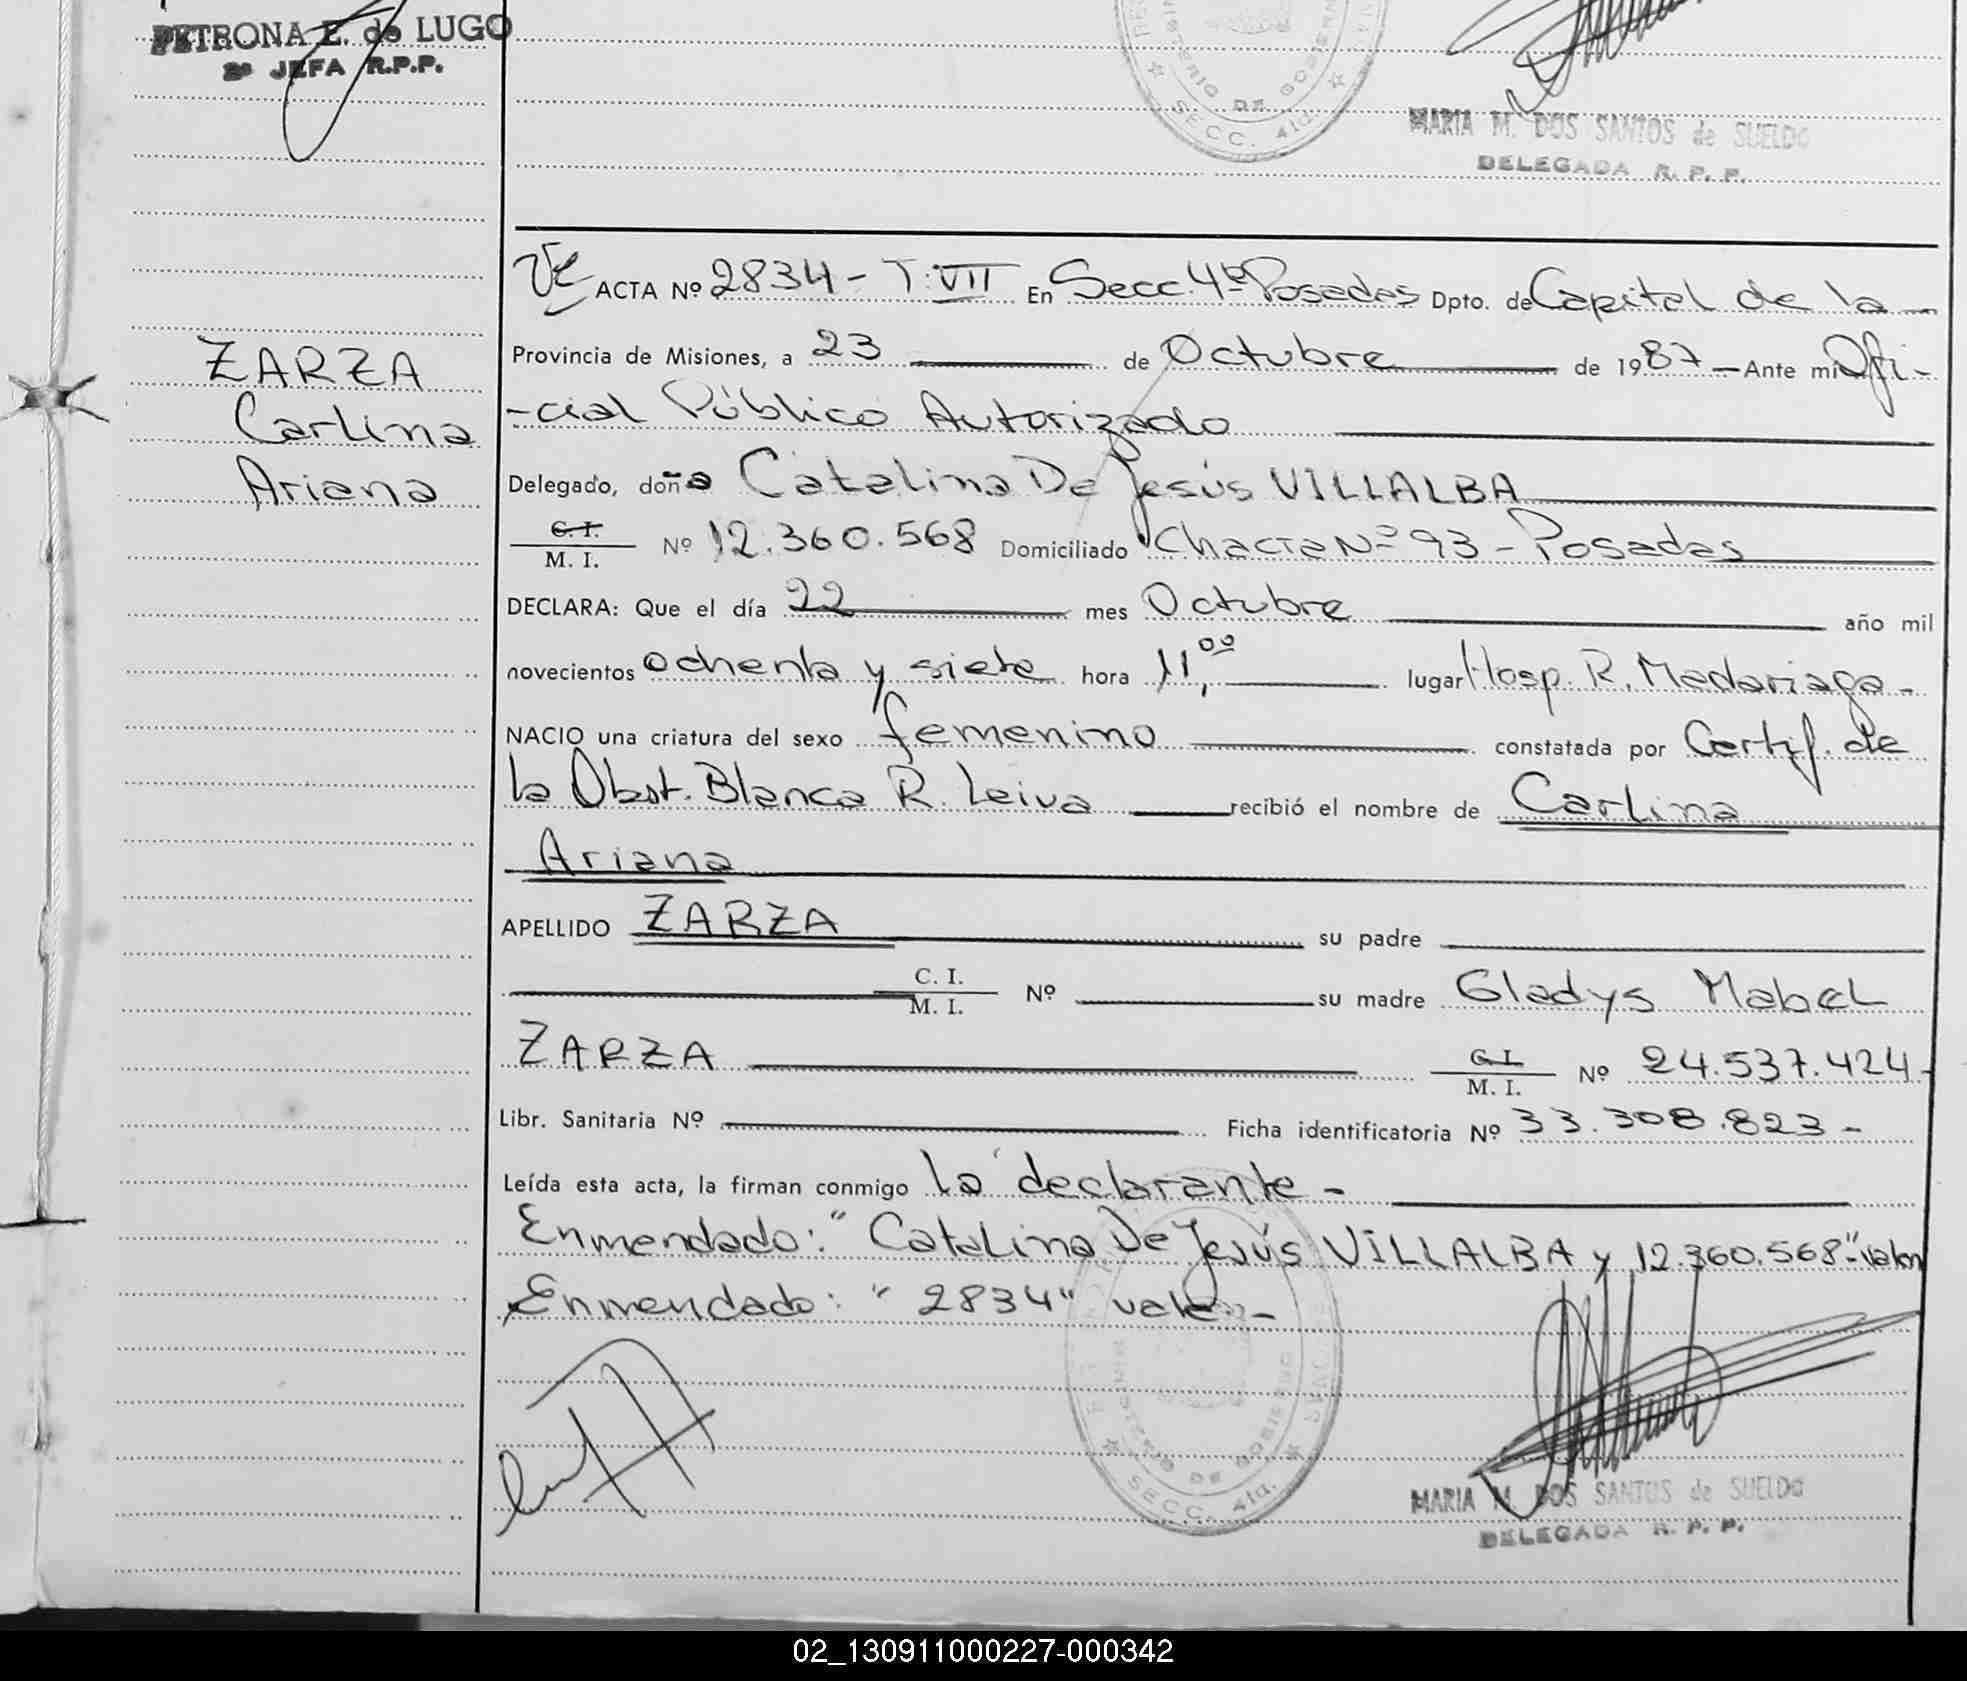 PETRONA E. de LUGO
2ª JEFA R.P.P.
MINISTERIO DE GOBIERNO
SECC. 4ta.
MARIA M. DOS SANTOS de SUELDO
DELEGADA R. P. P.
ZARZA
Carlina
Ariana
ACTA Nº 2834 - T: VII En Secc. 4ta Posadas Dpto. de Capital de la
Provincia de Misiones, a 23 de Octubre de 1987 - Ante mi Ofi-
-cial Público Autorizado
Delegado, doña Catalina De Jesús VILLALBA
C. I.
M. I. Nº 12.360.568 Domiciliado Chacra Nº 93 - Posadas
DECLARA: Que el día 22 mes Octubre año mil
novecientos ochenta y siete hora 11,00 lugar Hosp. R. Madariaga -
NACIO una criatura del sexo femenino constatada por Certif. de
la Obst. Blanca R. Leiva recibió el nombre de Carlina
Ariana
APELLIDO ZARZA su padre
C. I.
M. I. Nº su madre Gladys Mabel
ZARZA C. I.
M. I. Nº 24.537.424 -
Libr. Sanitaria Nº Ficha identificatoria Nº 33.308.823 -
Leída esta acta, la firman conmigo la declarante -
Enmendado: "Catalina De Jesús VILLALBA y 12.360.568" valen
Enmendado: "2834" vale. -
MINISTERIO DE GOBIERNO
SECC. 4ta.
MARIA M. DOS SANTOS de SUELDO
DELEGADA R. P. P.
02_130911000227-000342